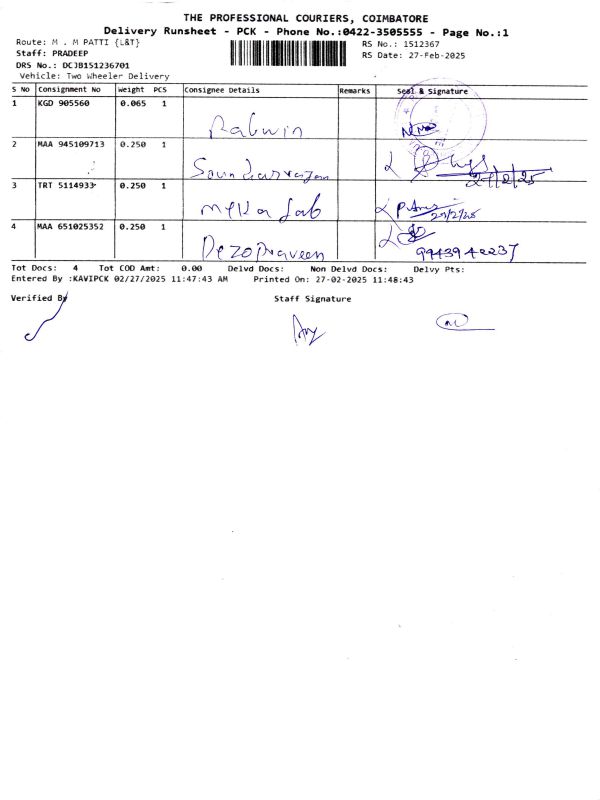 THE PROFESSIONAL COURIERS, COIMBATORE
Delivery Runsheet - PCK - Phone No.:0422-3505555 - Page No.:1
Route: M . M PATTI {L&T}
RS No.: 1512367
Staff: PRADEEP
RS Date: 27-Feb-2025
DRS No.: DCJB151236701
Vehicle: Two Wheeler Delivery
S No Consignment No Weight PCS Consignee Details Remarks Seal & Signature
1 KGD 905560 0.065 1
Rabwin
2 MAA 945109713 0.250 1
27/2/25
3 TRT 5114933 0.250 1
Meka Lab
27/2/25
4 MAA 651025352 0.250 1
DezoPraveen
9943942237
Tot Docs: 4 Tot COD Amt: 0.00 Delvd Docs: Non Delvd Docs: Delvy Pts:
Entered By :KAVIPCK 02/27/2025 11:47:43 AM Printed On: 27-02-2025 11:48:43
Verified By Staff Signature